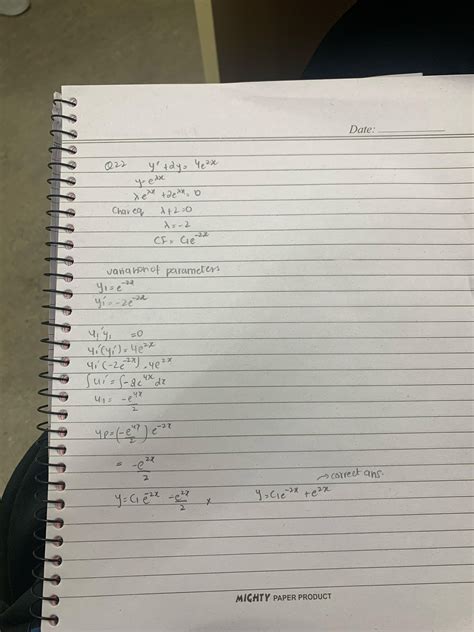 Date:
Q22 y' + 2y = 4e^2x
y = e^λx
λe^λx + 2e^λx = 0
Char eq λ + 2 = 0
λ = -2
CF = C1e^-2x
variation of parameters
y1 = e^-2x
y1' = -2e^-2x
u1'y1 = 0
u1'(y1') = 4e^2x
u1'(-2e^-2x) = 4e^2x
∫u1' = ∫-2e^4x dx
u1 = -e^4x/2
yp = (-e^4x/2) e^-2x
= -e^2x/2
→ correct ans.
y = C1e^-2x -e^2x/2 x y = C1e^-2x + e^2x
MIGHTY PAPER PRODUCT